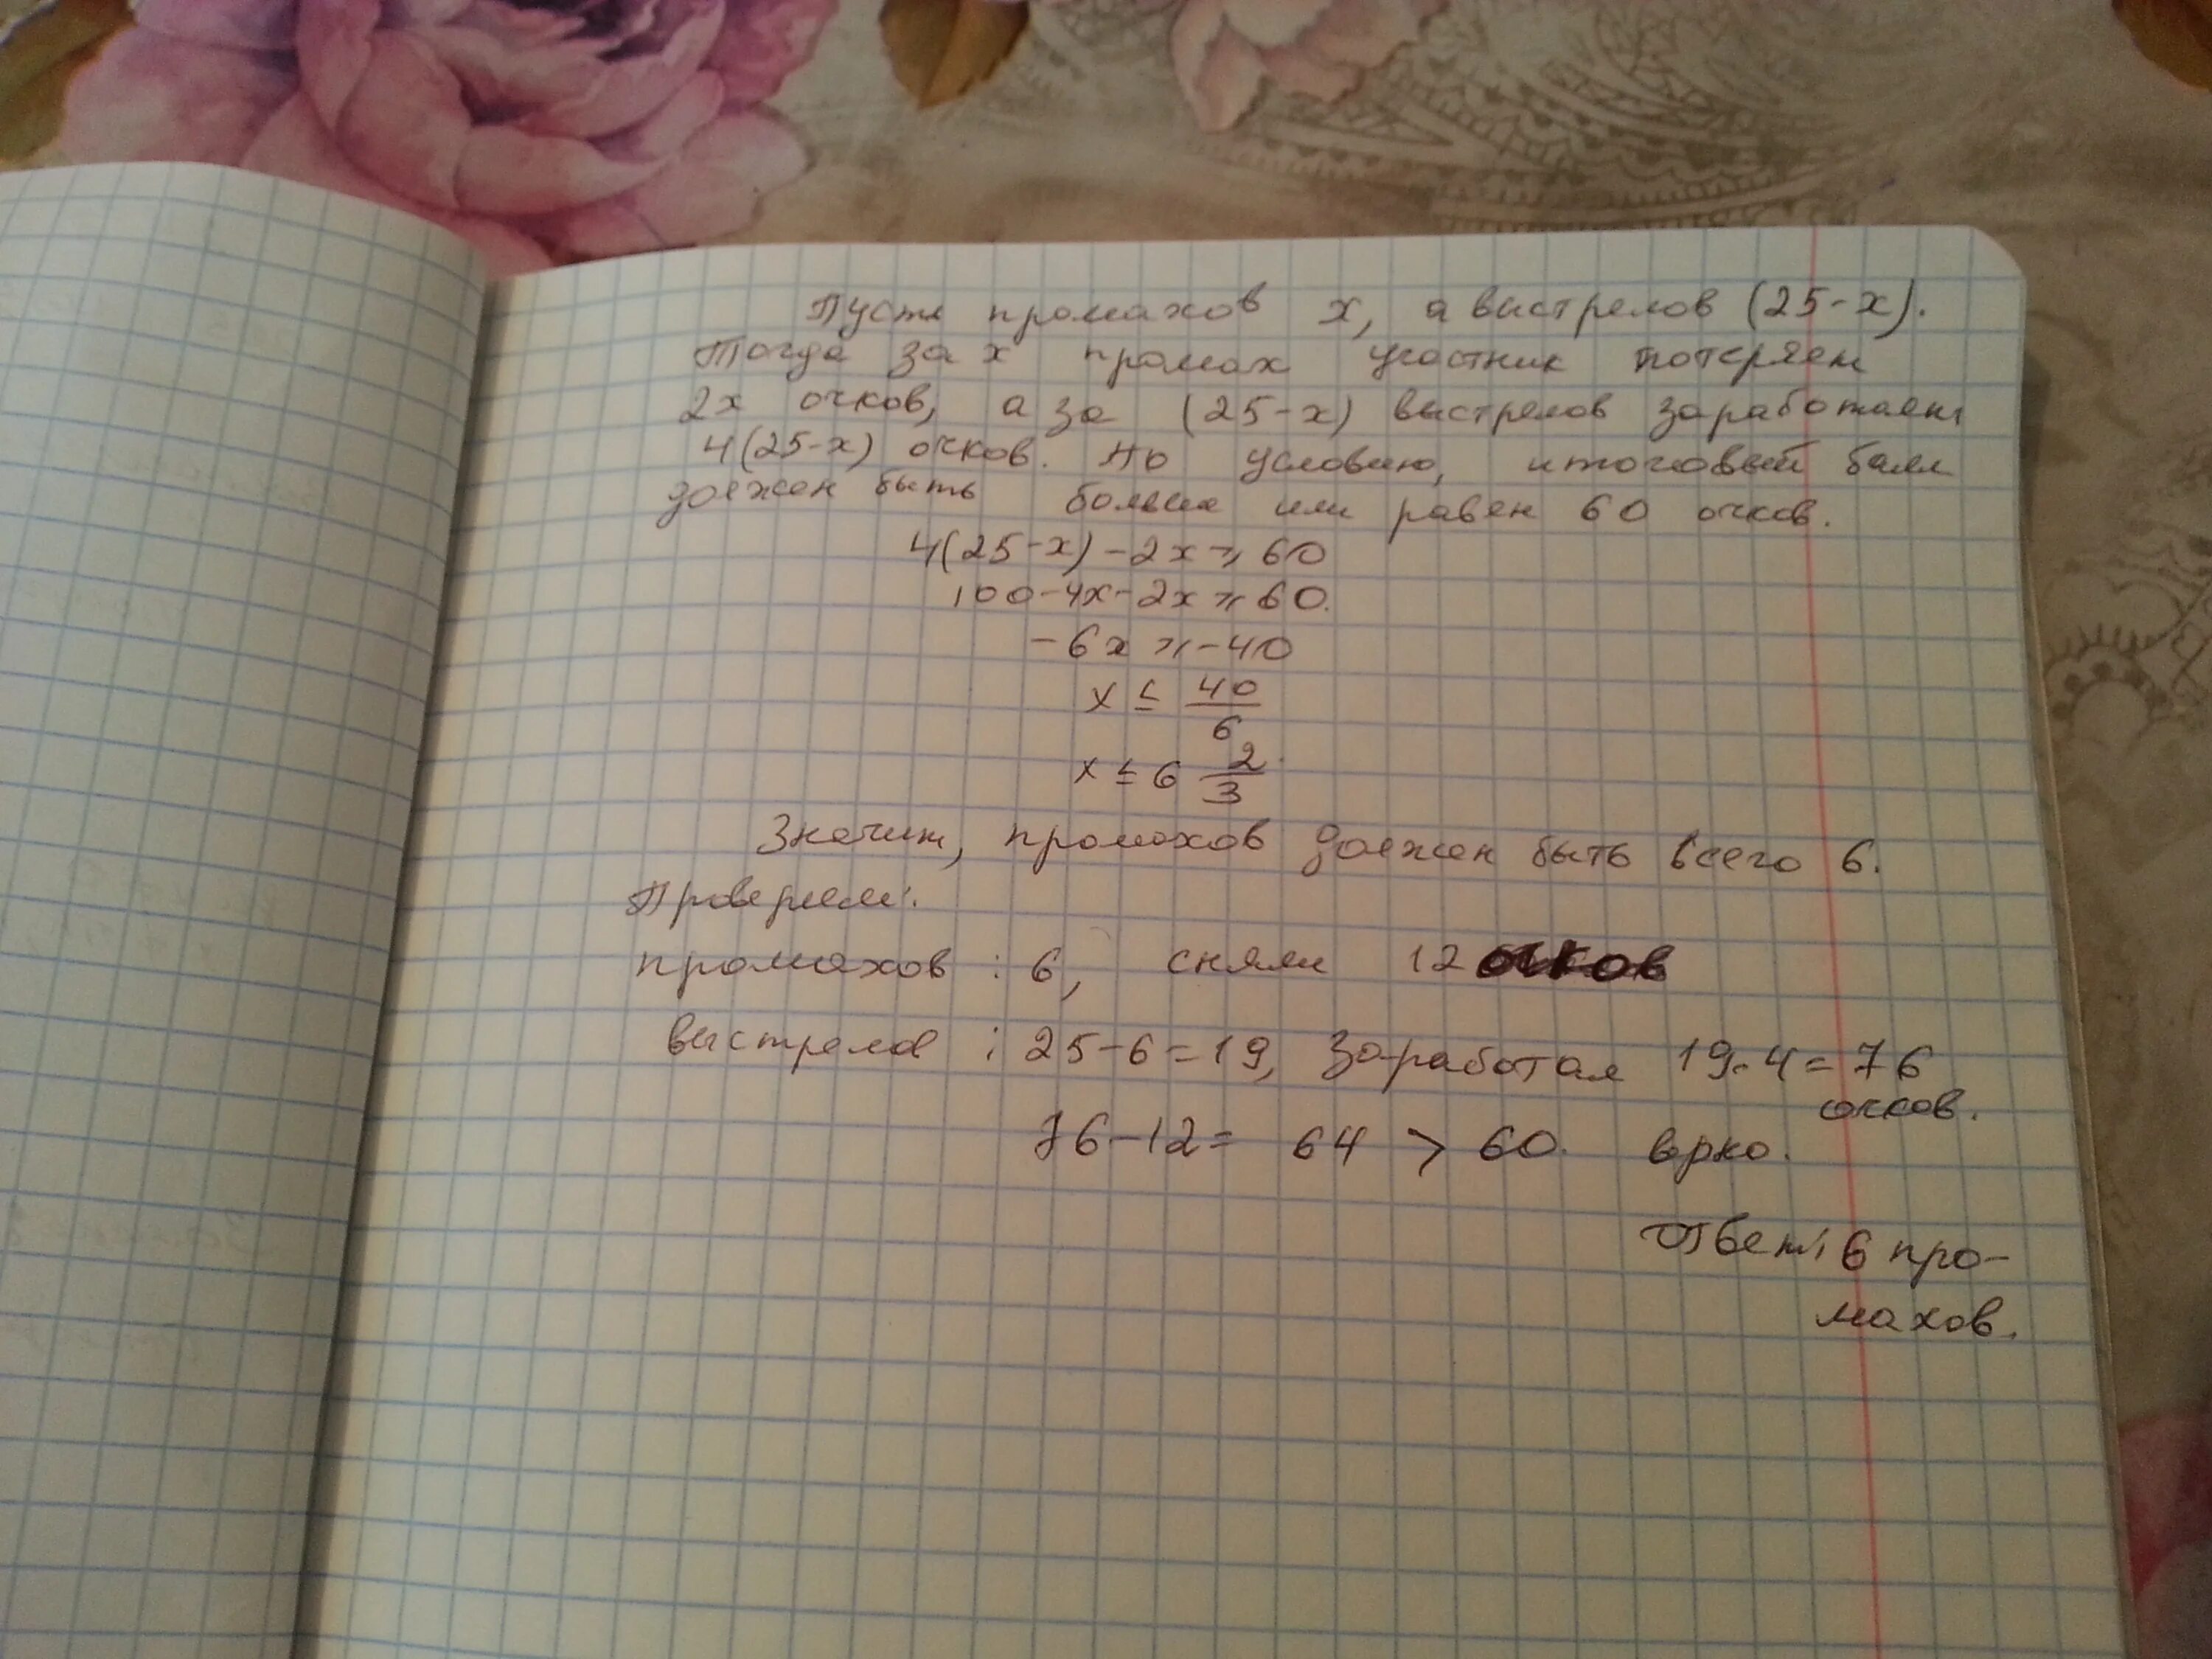 Пусть промахов x, а выстрелов (25-x).
Тогда за x промах участник потеряет
2x очков, а за (25-x) выстрелов заработает
4(25-x) очков. По условию, итоговый балл
должен быть больше или равен 60 очков.
4(25-x)-2x⩾60
100-4x-2x⩾60.
-6x⩾-40
x ≤ 40/6
x ≤ 6 2/3
Значит, промахов должен быть всего 6.
Проверим:
промахов : 6, сняли 12 очков
выстрелов : 25-6=19, заработал 19·4=76
очков.
76-12= 64 > 60. врно.
Ответ: 6 про-
махов.